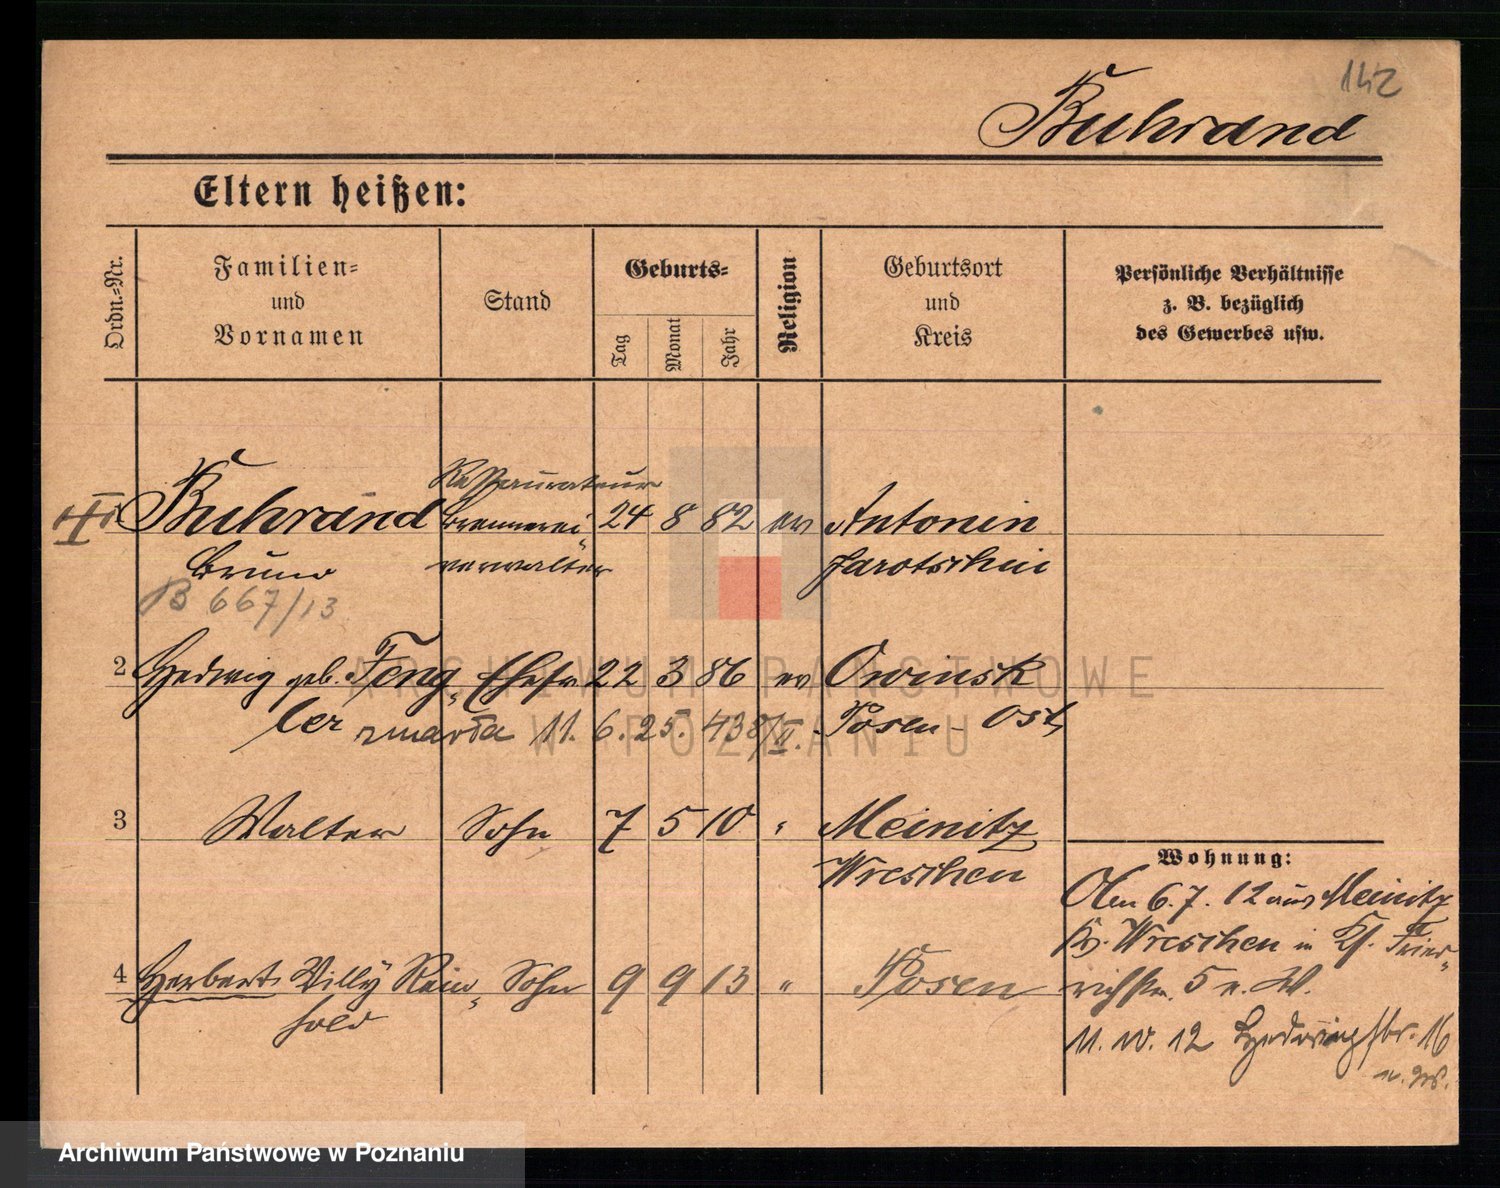 142
Buhrand
Eltern heißen:
Ordn.-Nr.
Familien-
und
Vornamen
Stand
Geburts-
Tag
Monat
Jahr
Religion
Geburtsort
und
Kreis
Persönliche Verhältnisse
z. B. bezüglich
des Gewerbes usw.
Restaurateur
Buhrand Brennerei- 24 8 82 ev Antonin
Bruno verwalter Jarotschin
B 667/13
2 Hedwig geb. Feng- Ehefr 22 3 86 ev Owinsk
ler zmarła 11. 6. 25. 438/II. Posen-Ost
3 Walter Sohn 7 5 10 " Meinitz
Wreschen
Wohnung:
6.7.12 aus Meinitz
Kr. Wreschen in Fried-
4 Herbert Willy Rein- Sohn 9 9 13 " Posen
hold
richstr. 5 v. W.
11.10.12 Hedwigstr. 16
ARCHIWUM PAŃSTWOWE
W POZNANIU
Archiwum Państwowe w Poznaniu